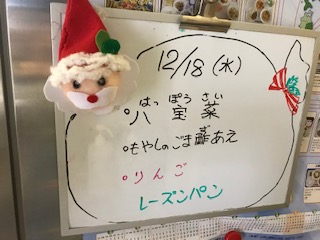 12/18(水)
はっぽうさい
八宝菜
もやしのごま酢あえ
りんご
レーズンパン